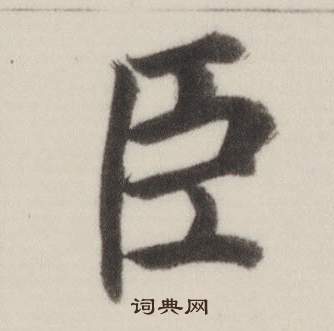 臣
词典网